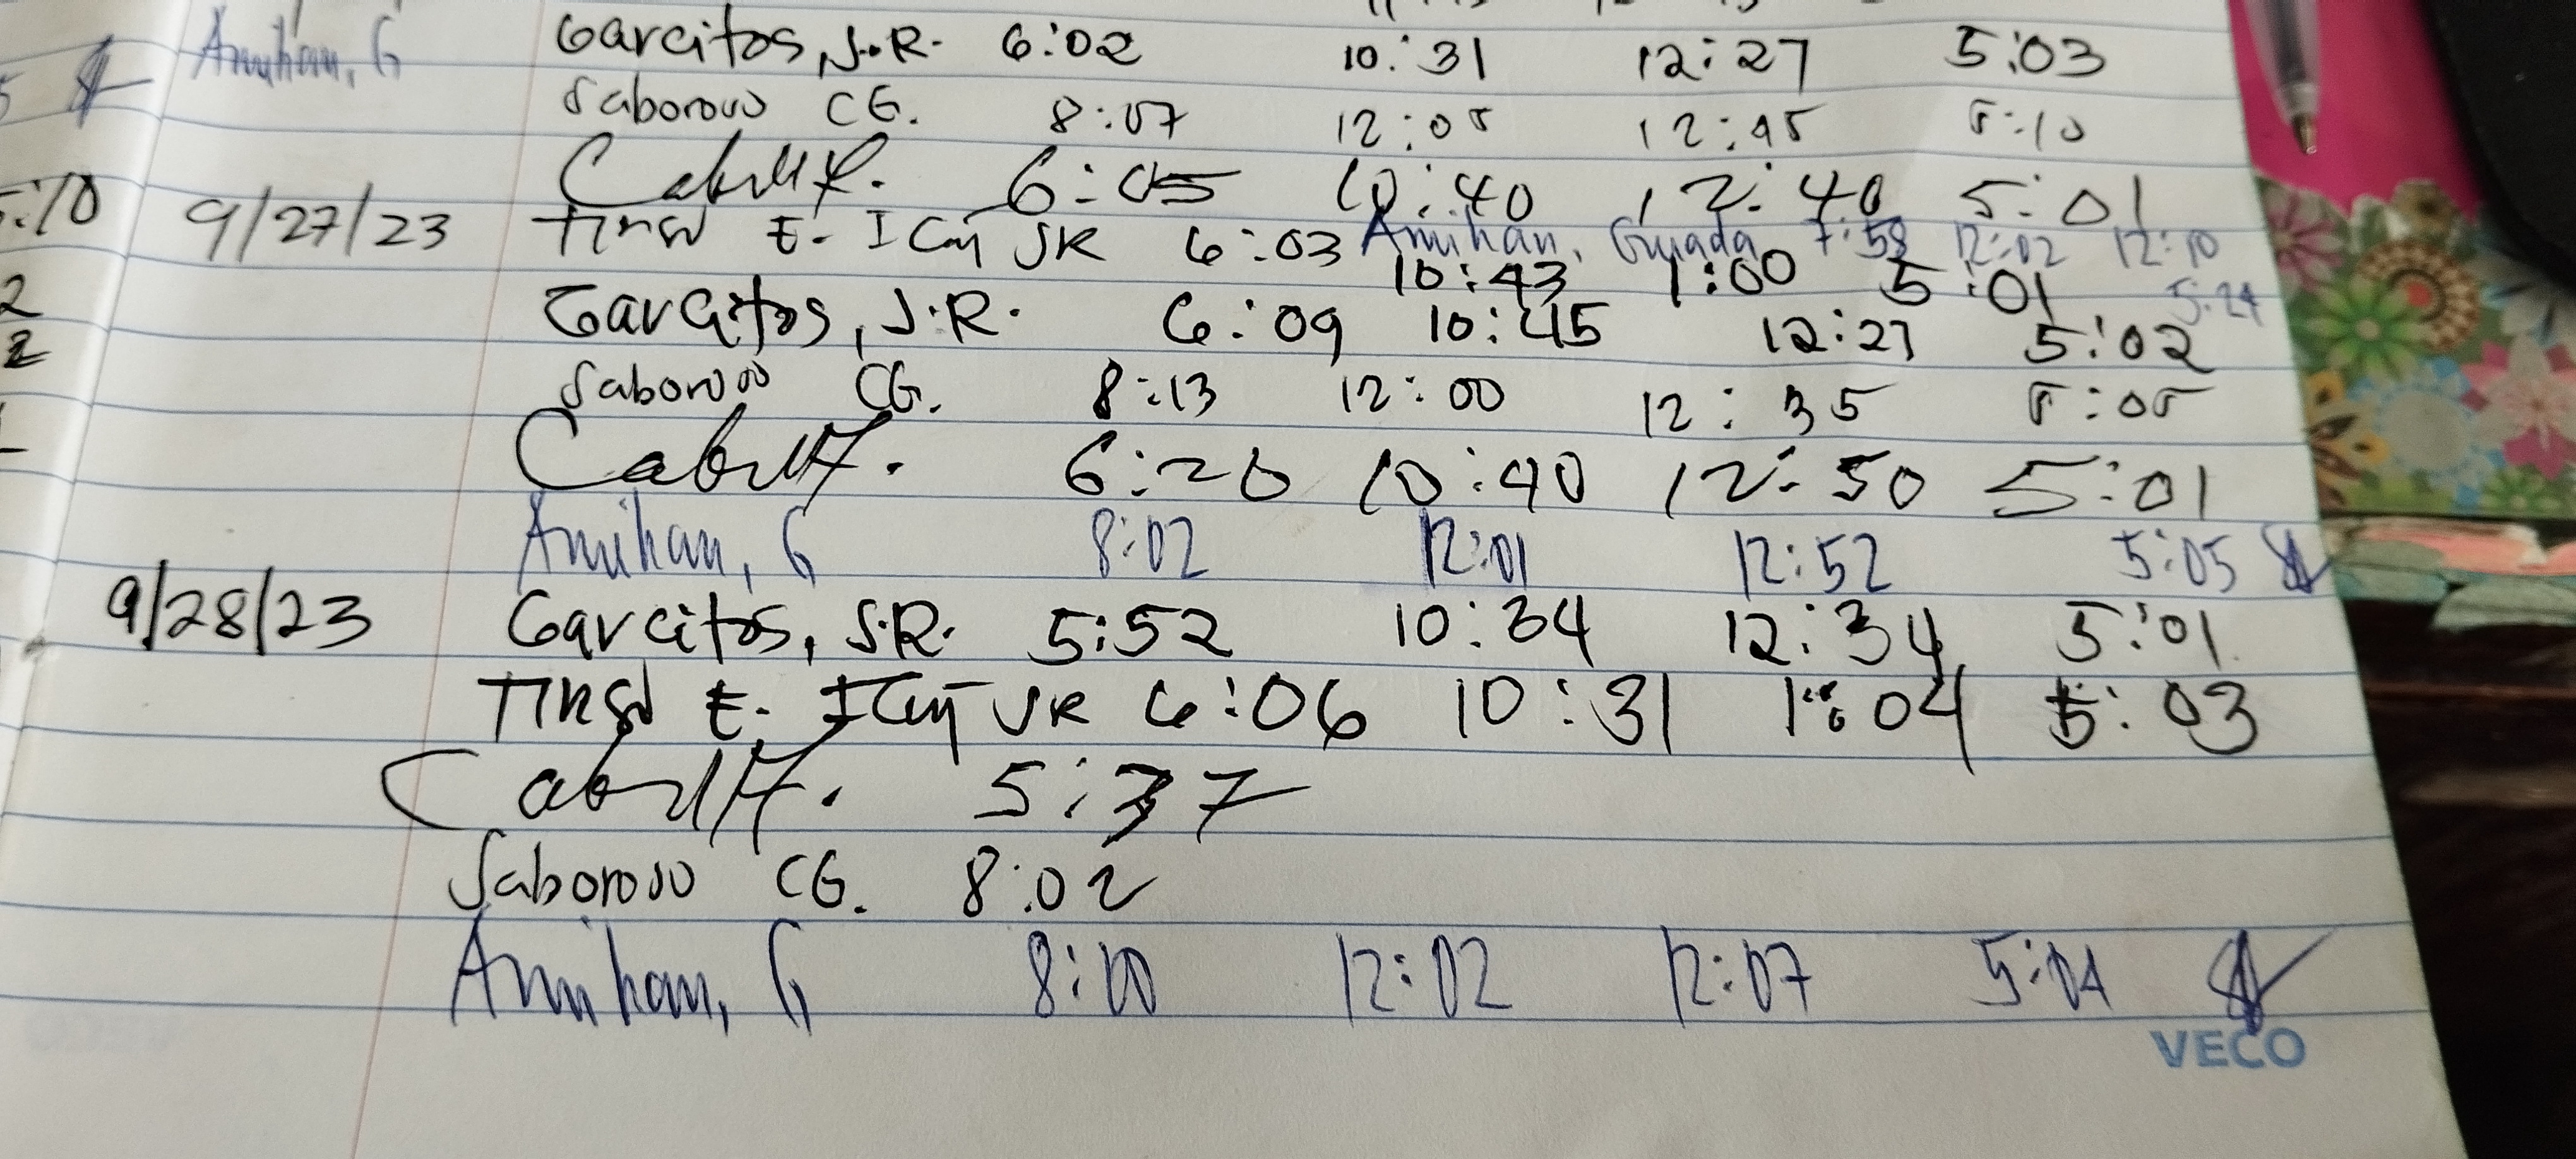 Amihan, G
Garcitos, J.R. 6:02 10:31 12:27 5:03
Saboroso CG. 8:07 12:05 12:45 5:10
6:05 10:40 12:40 5:01
:10 9/27/23 E. JR 6:03 Amihan, 7:58 12:02 12:10
10:43 1:00 5:01 5:24
Garcitos, J.R. 6:09 10:45 12:27 5:02
Saboroso CG. 8:13 12:00 12:35 5:05
6:20 10:40 12:50 5:01
Amihan, G 8:02 12:01 12:52 5:05
9/28/23 Garcitos, J.R. 5:52 10:34 12:34 5:01
E. JR 6:06 10:31 1:04 5:03
5:37
Saboroso CG. 8:02
Amihan, G 8:10 12:02 12:07 5:04
VECO